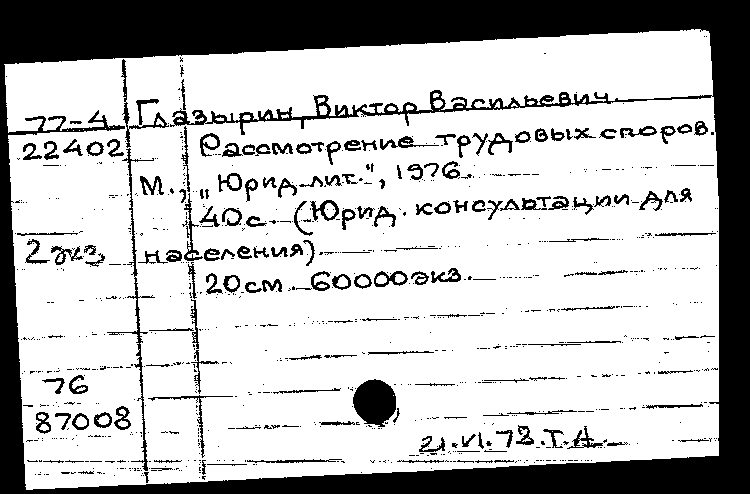 77-4 Глазырин, Виктор Васильевич.
22402 Рассмотрение трудовых споров.
М., „Юрид. лит.", 1976.
40 с. (Юрид. консультации для
2 экз. населения).
20 см. 60000 экз.
76
87008
21.VI.78. Т.А.